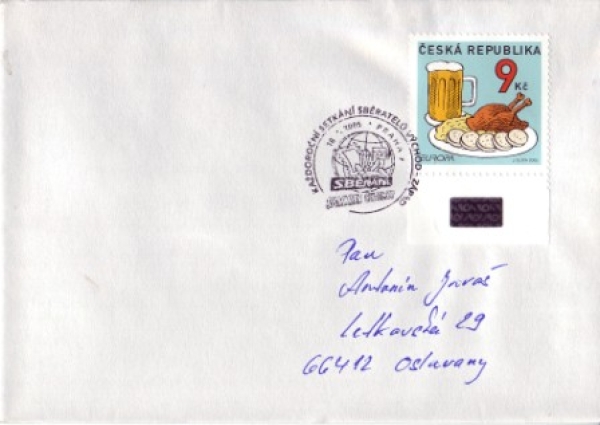 ČESKÁ REPUBLIKA
9
Kč
EUROPA
KAŽDOROČNÍ SETKÁNÍ SBĚRATELŮ VÝCHOD - ZÁPAD
PRAHA
SBĚRATEL
Pan
Antonín
29
66412 Oslavany